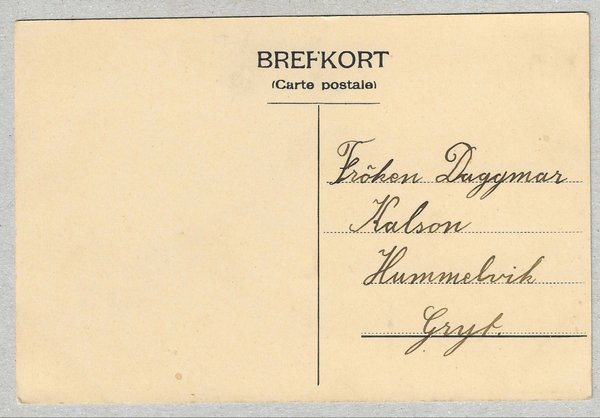 BREFKORT
(Carte postale)
Fröken Daggmar
Kalson
Hummelvik
Gryt.